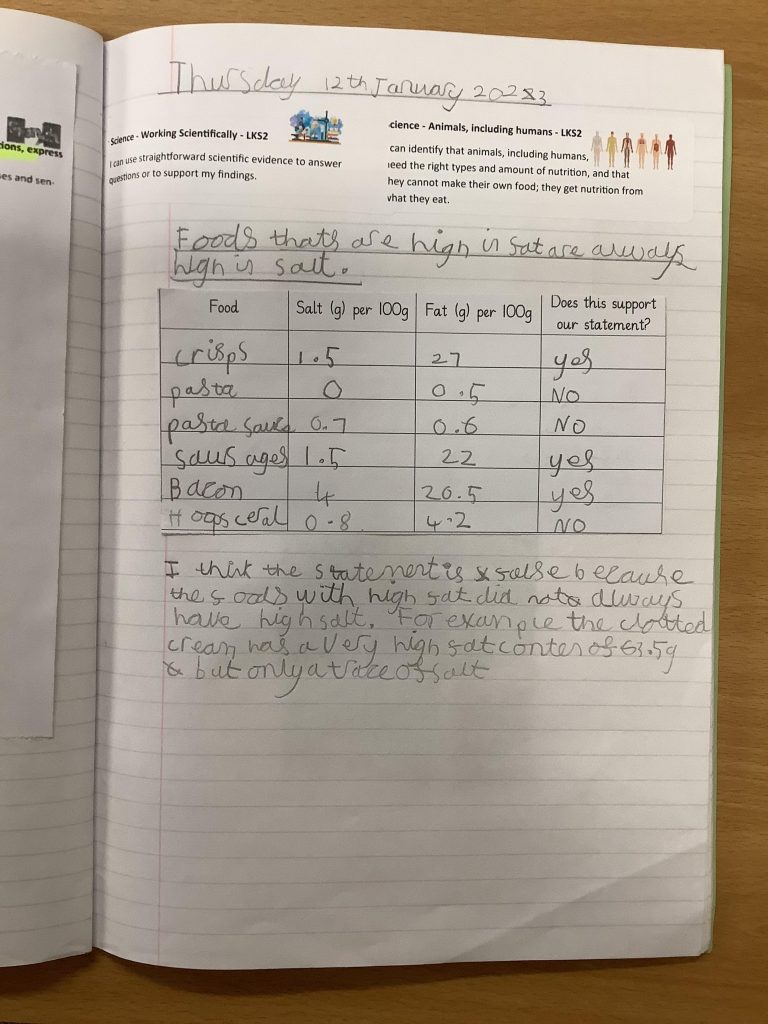 ions, express
es and sen-
Thursday 12th January 2023
Science - Working Scientifically - LKS2
I can use straightforward scientific evidence to answer
questions or to support my findings.
cience - Animals, including humans - LKS2
can identify that animals, including humans,
need the right types and amount of nutrition, and that
hey cannot make their own food; they get nutrition from
what they eat.
Foods thats are high in fat are always
high in salt.
Food Salt (g) per 100g Fat (g) per 100g Does this support our statement?
crisps 1.5 27 yes
pasta 0 0.5 NO
pasta sauce 0.7 0.6 NO
sausages 1.5 22 yes
Bacon 4 20.5 yes
Hoops ceral 0.8 4.2 NO
I think the statement is false because
the foods with high fat did not always
have high salt. For example the clotted
cream has a very high fat conten of 63.5g
but only a trace of salt